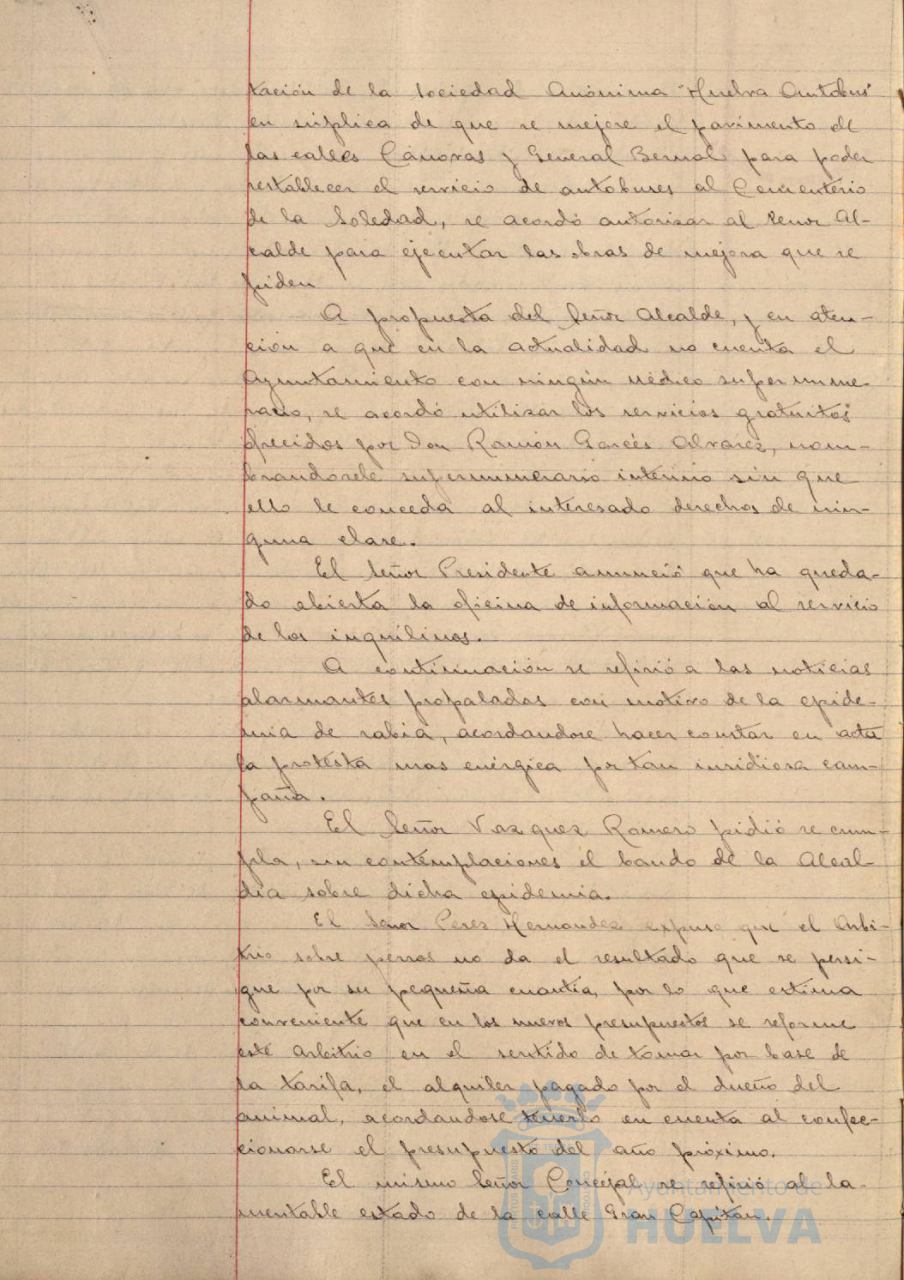 tación de la Sociedad Anónima "Huelva Autobus"
en súplica de que se mejore el pavimento de
las calles Cánovas y General Bernal para poder
restablecer el servicio de autobuses al Cementerio
de la Soledad, se acordó autorizar al Señor Al-
calde para ejecutar las obras de mejora que se
piden
A propuesta del Señor Alcalde, y en aten-
ción a que en la actualidad no cuenta el
Ayuntamiento con ningún médico supernume-
rario, se acordó utilizar los servicios gratuitos
ofrecidos por Don Ramón Garcés Alvarez, nom-
brandosele supernumerario interino sin que
ello le conceda al interesado derechos de nin-
guna clase.
El Señor Presidente anunció que ha queda-
do abierta la oficina de información al servicio
de los inquilinos.
A continuación se refirió a las noticias
alarmantes propaladas con motivo de la epide-
mia de rabia, acordandose hacer constar en acta
la protesta mas enérgica por tan insidiosa cam-
paña.
El Señor Vazquez Romero pidió se cum-
pla, sin contemplaciones el bando de la Alcal-
día sobre dicha epidemia.
El Señor Perez Hernandez expuso que el Arbi-
trio sobre perros no da el resultado que se persi-
gue por su pequeña cuantía, por lo que estima
conveniente que en los nuevos presupuestos se reforme
este arbitrio en el sentido de tomar por base de
la tarifa, el alquiler pagado por el dueño del
animal, acordandose tenerlo en cuenta al confec-
cionarse el presupuesto del año próximo.
El mismo Señor Concejal se refirió al la-
mentable estado de la calle Gran Capitán,
Ayuntamiento de
HUELVA